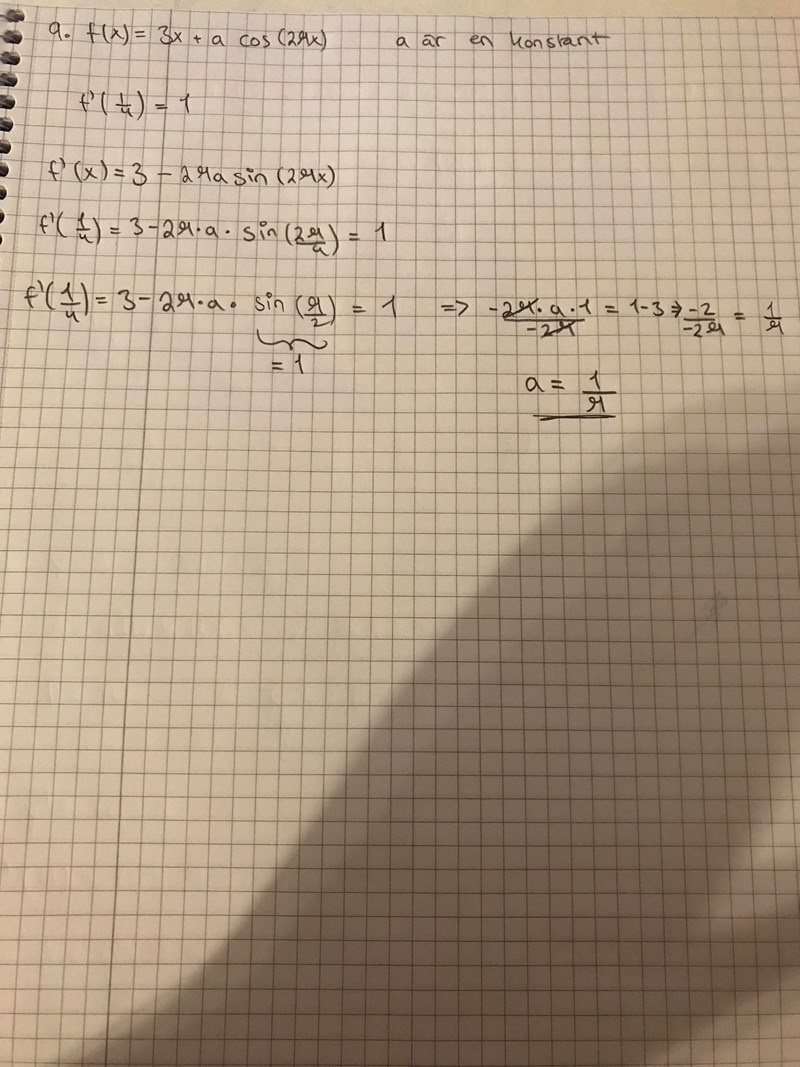 9. f(x) = 3x + a cos(2πx) a är en konstant
f'(1/4) = 1
f'(x) = 3 - 2πa sin(2πx)
f'(1/4) = 3 - 2π·a· sin(2π/4) = 1
f'(1/4) = 3 - 2π·a· sin(π/2) = 1 => -2π·a·1/-2π = 1-3 => -2/-2π = 1/π
= 1
a = 1/π